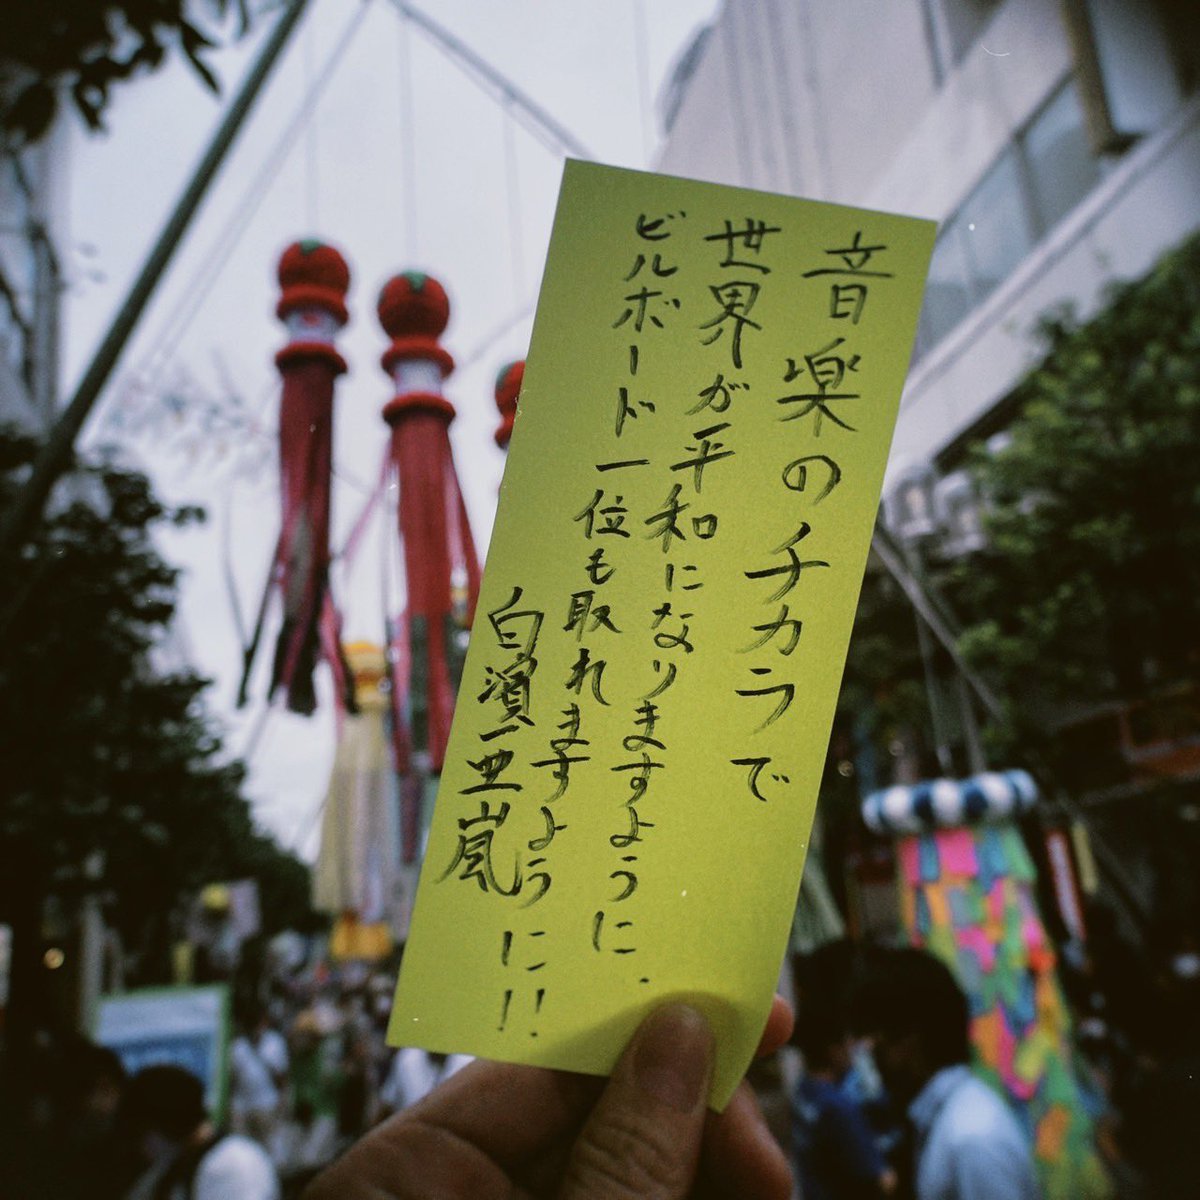 音楽のチカラで
世界が平和になりますように.
ビルボード一位も取れますように!!
白濱亜嵐